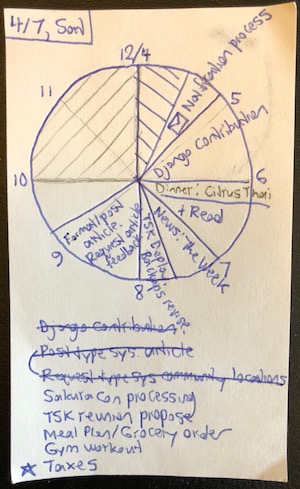 4/7, Sun
12/4
11
10
9
8
7
6
5
Notification process
Django contribution
Dinner: Citrus Thai
+ Read
News: the Week
TSK Deploy
Backups revise.
Format/post
article.
Request article
feedback
Django Contribution
Post type sys. article
Request type sys community locations
Sakura Con processing
TSK reunion propose
Meal Plan/Grocery order
Gym workout
☆ Taxes